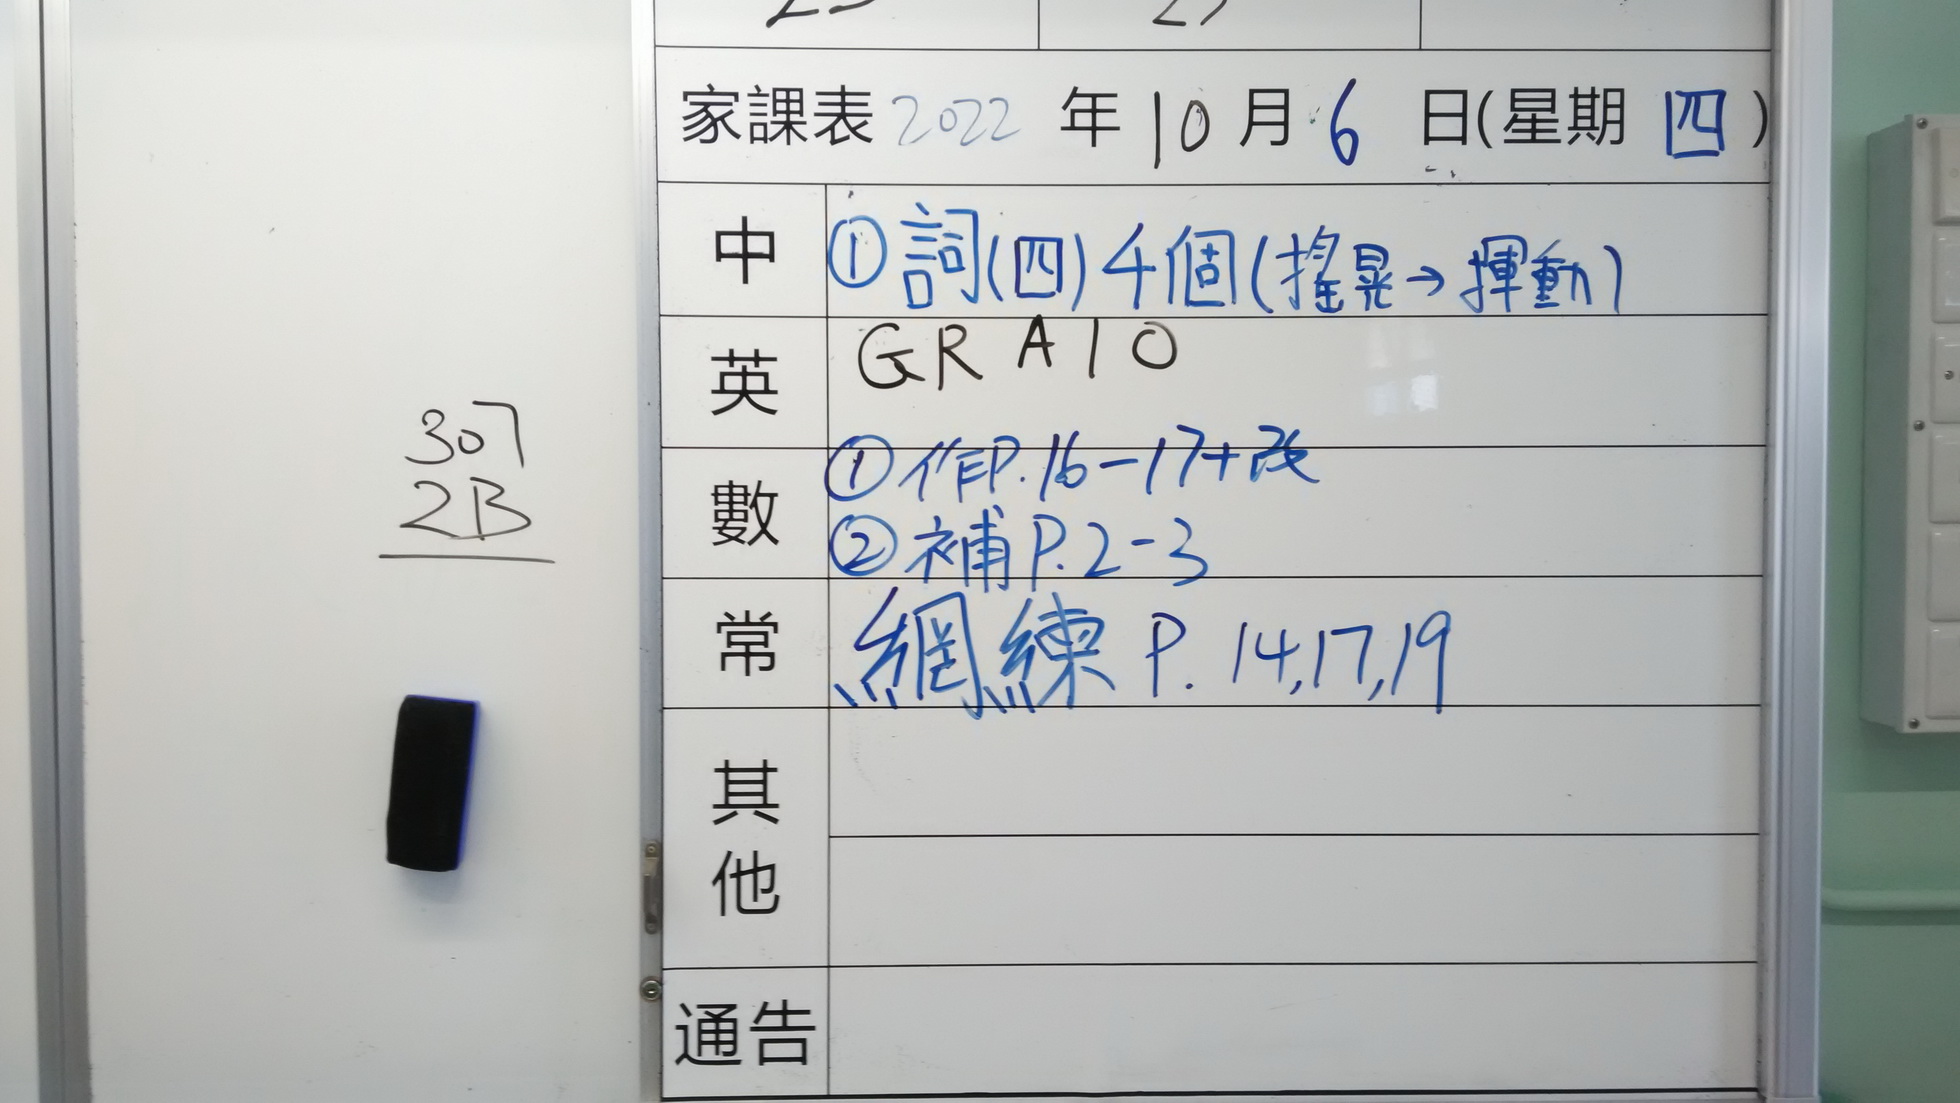 家課表 2022 年 10 月 6 日(星期 四 )
中 ①詞(四)4個(搖晃→揮動)
英 GRA10
數 ①作P.16-17+改
②補P.2-3
常 網練 P. 14,17,19
其他
通告
307
2B